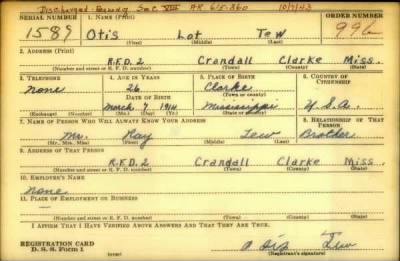 Discharged Sec VIII AR 615-360 10/7/43
SERIAL NUMBER 1. NAME (Print) ORDER NUMBER
1589 Otis Lot Tew 996
(First) (Middle) (Last)
2. ADDRESS (Print)
R.F.D. 2 Crandall Clarke Miss.
(Number and street or R. F. D. number) (Town) (County) (State)
3. TELEPHONE 4. AGE IN YEARS 5. PLACE OF BIRTH 6. COUNTRY OF CITIZENSHIP
None 26 Clarke
DATE OF BIRTH (Town or county)
March 7 1914 Mississippi U.S.A.
(Exchange) (Number) (Mo.) (Day) (Yr.) (State or country)
7. NAME OF PERSON WHO WILL ALWAYS KNOW YOUR ADDRESS 8. RELATIONSHIP OF THAT PERSON
Mr. Ray Tew Brother
(Mr., Mrs., Miss) (First) (Middle) (Last)
9. ADDRESS OF THAT PERSON
R.F.D. 2 Crandall Clarke Miss.
(Number and street or R. F. D. number) (Town) (County) (State)
10. EMPLOYER'S NAME
None
11. PLACE OF EMPLOYMENT OR BUSINESS
(Number and street or R. F. D. number) (Town) (County) (State)
I AFFIRM THAT I HAVE VERIFIED ABOVE ANSWERS AND THAT THEY ARE TRUE.
REGISTRATION CARD
D. S. S. Form 1 Otis Tew
(Registrant's signature)